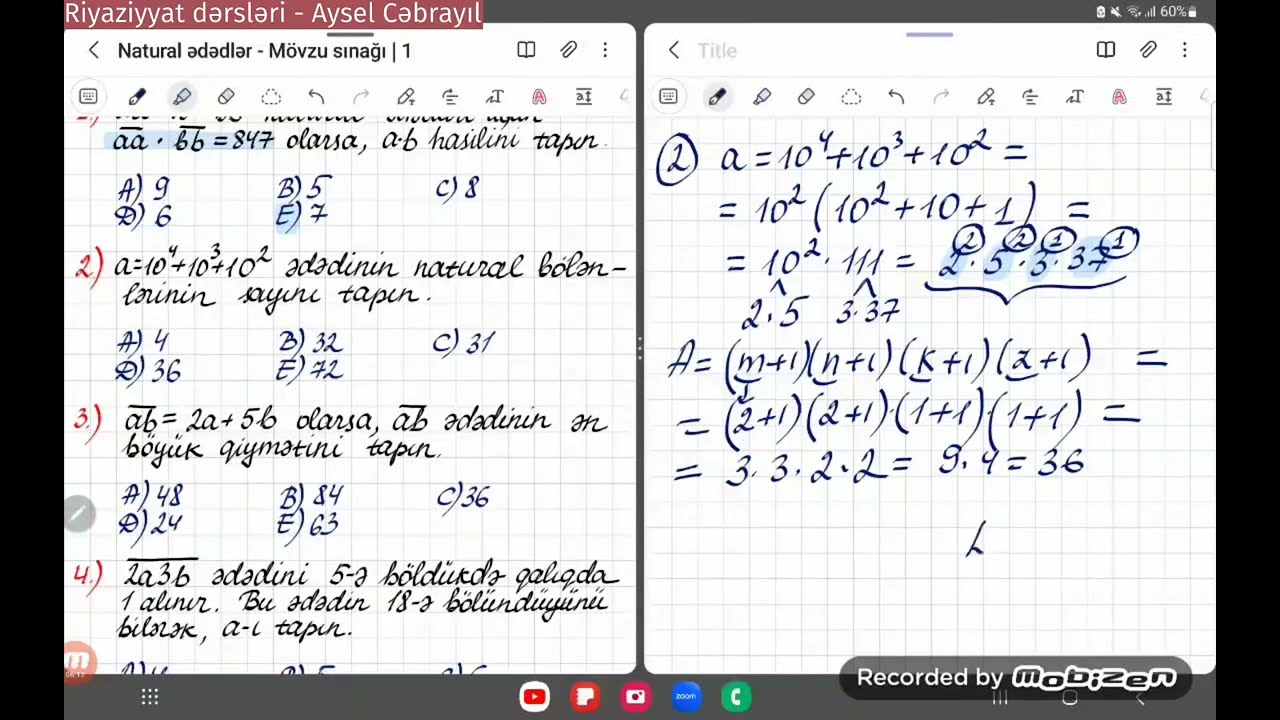 Riyaziyyat dərsləri - Aysel Cəbrayıl
60%
Natural ədədlər - Mövzu sınağı | 1
aa · bb = 847 olarsa, a·b hasilini tapın.
A) 9 B) 5 C) 8
D) 6 E) 7
2.) a=10⁴+10³+10² ədədinin natural bölən-
lərinin sayını tapın.
A) 4 B) 32 C) 31
D) 36 E) 72
3.) ab = 2a+5b olarsa, ab ədədinin ən
böyük qiymətini tapın.
A) 48 B) 84 C) 36
D) 24 E) 63
4.) 2a3b ədədini 5-ə böldükdə qalıqda
1 alınır. Bu ədədin 18-ə bölündüyünü
bilərək, a-ı tapın.
Title
2 a = 10⁴+10³+10² =
= 10² (10²+10+1) =
= 10² · 111 = 2² · 5² · 3¹ · 37¹
2·5 3·37
A = (m+1)(n+1)(k+1)(z+1) =
= (2+1)(2+1)·(1+1)·(1+1) =
= 3·3·2·2 = 9·4 = 36
zoom
Recorded by MOBIZEN